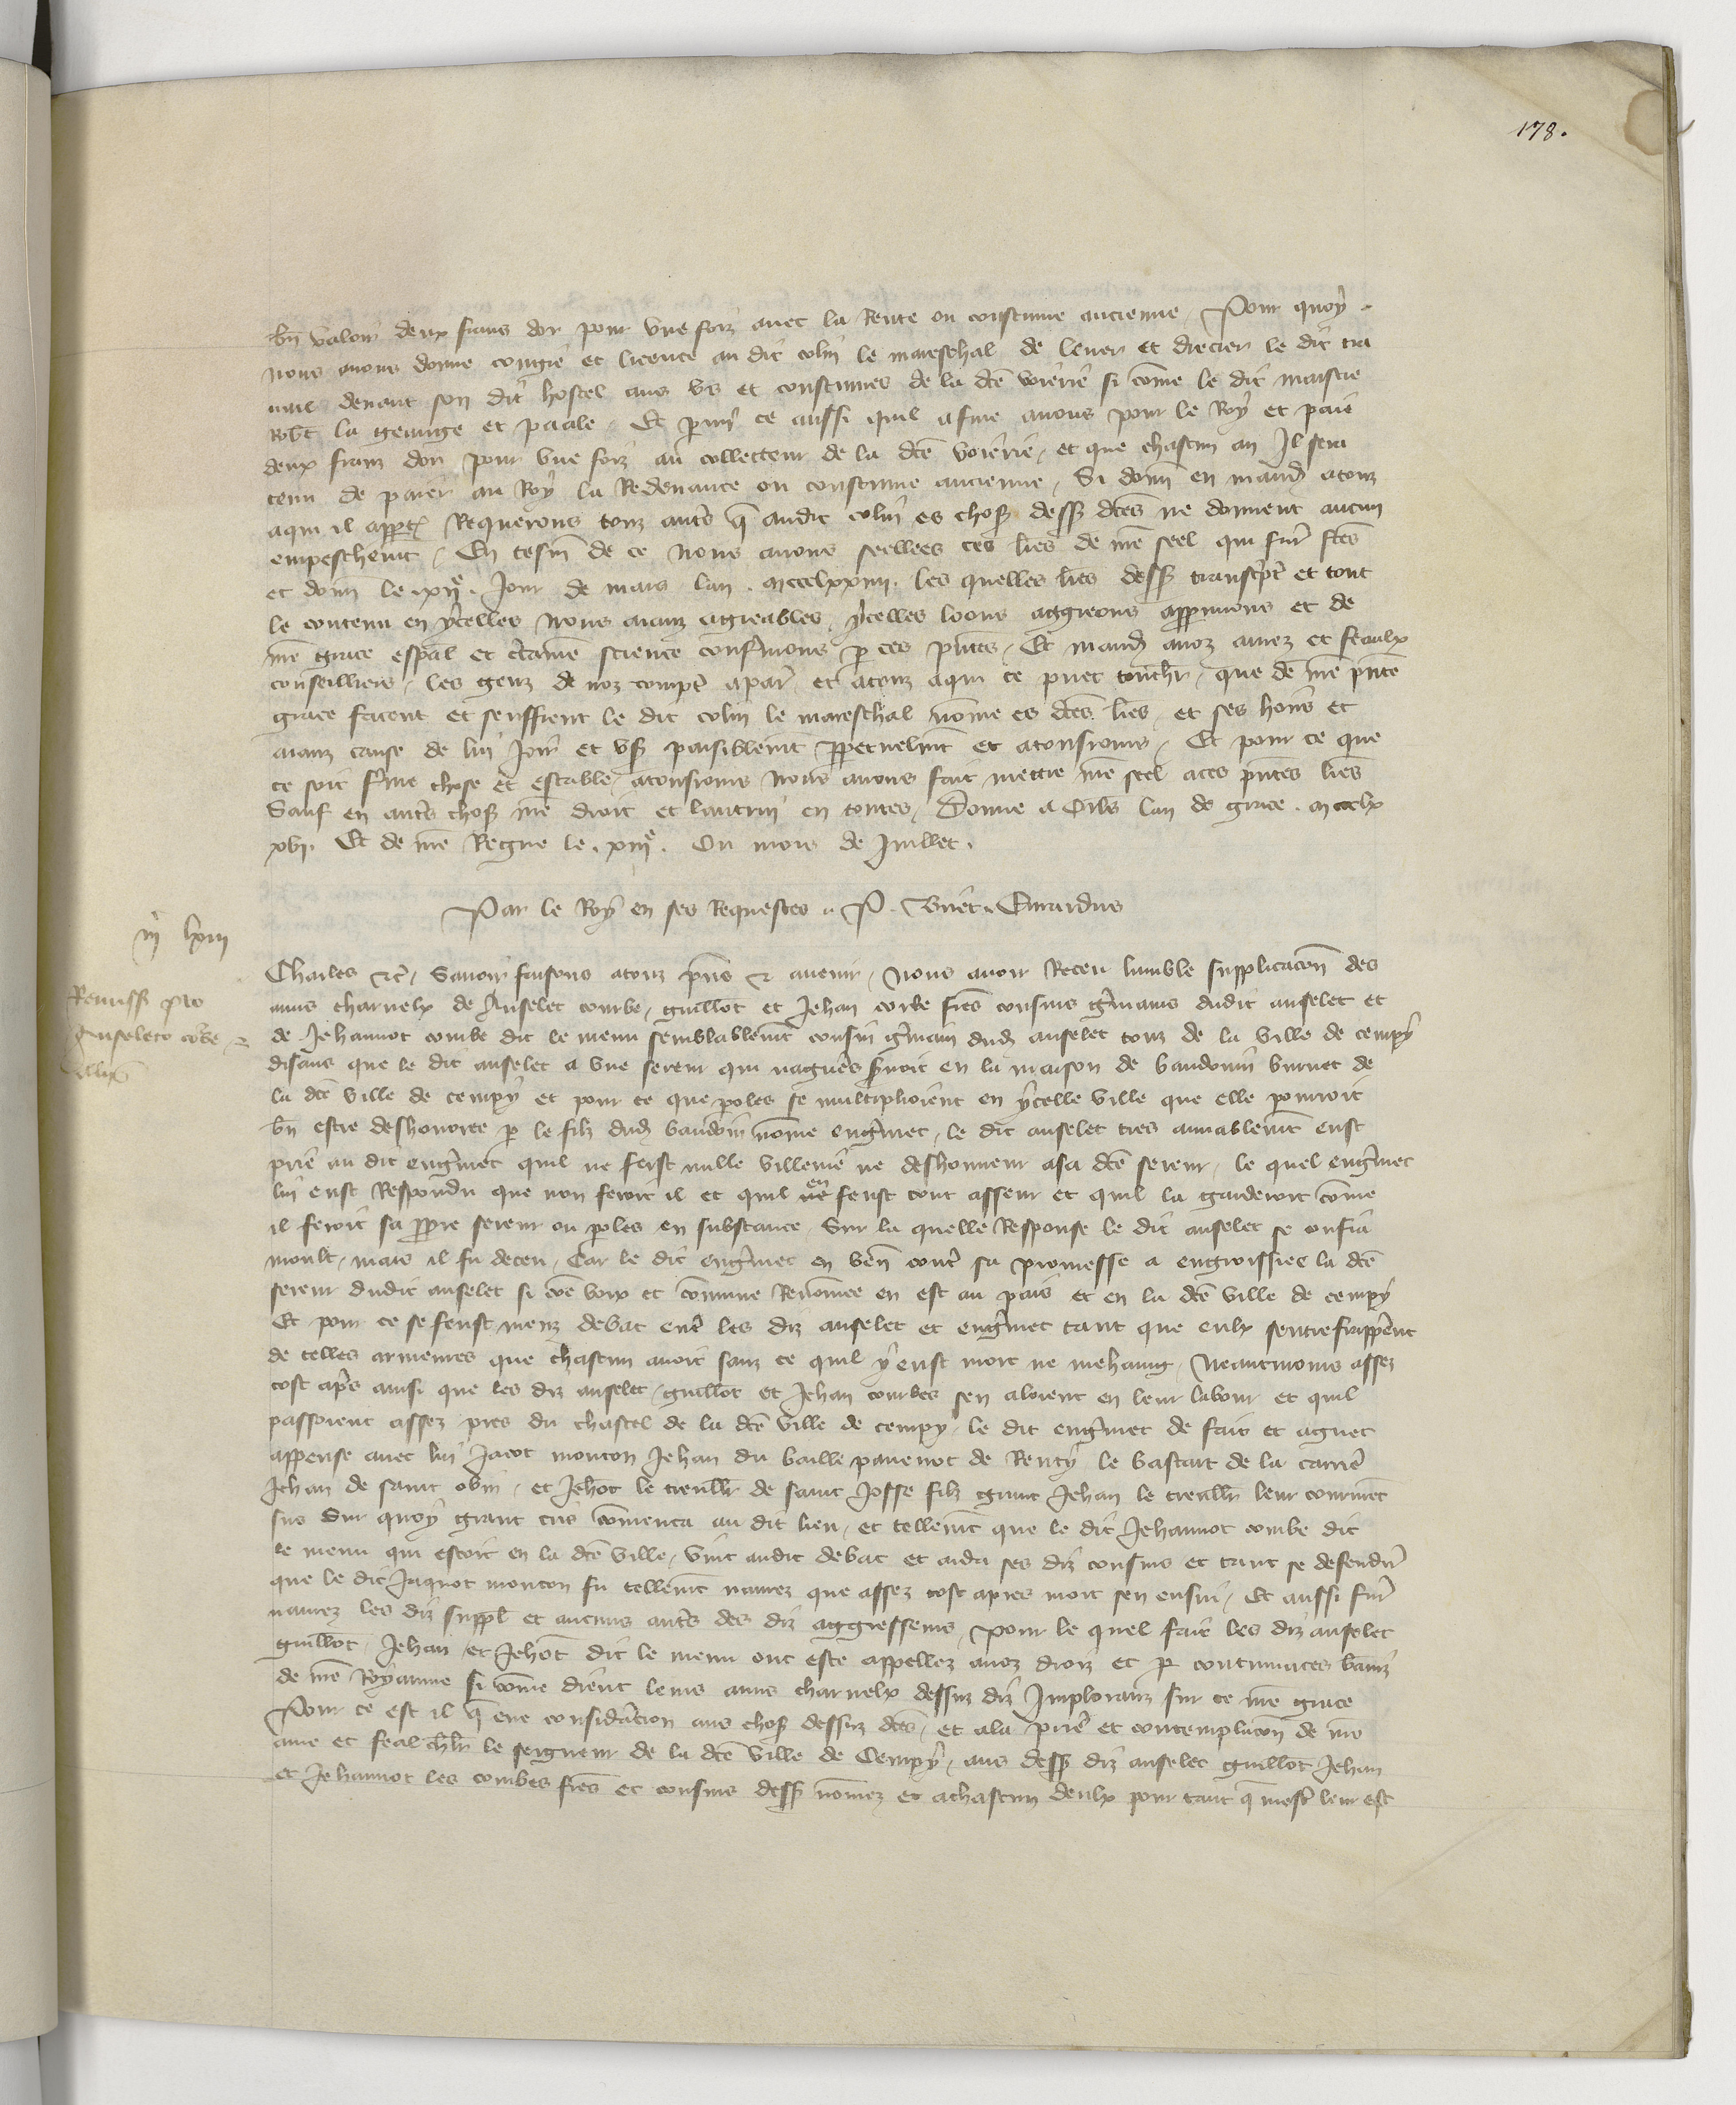 178.
bn̄ valoir deux frans dor pour une foiz avec la Rente ou coustume ancienne. Pour quoy
nous avons donne congie et licence au dit colin le mareschal de lever et drecier le dit tra
vail devant son dit hostel aus us et coustumes de la dc̄e voierie si cōme le dit maistre
Rob̄t la gravige et Et p̄my ce aussi quil afine avons pour le Roy et paie
deux franz dor pour une foiz au collecteur de la dc̄e voierie, et que chascun an Il sera
tenu de paier au Roy la Redevance ou coustume ancienne, Si donn̄ en mand̄ atouz
aqui il app̄t Requerons touz aut̄s q̄ audit colin es choses dess̄ dc̄es ne donnent aucun
empeschem̄t, En tesm̄ de ce nous avons seellees ces lr̄es de nr̄e seel qui fur̄ fc̄es
et donn̄ le xiie. Jour de mars lan mccclxxiiii. les quelles lr̄es dess̄ transc̄pt̄ et tout
le contenu en ycelles nous aianz agreables, ycelles loons aggreons app̄vuons et de
nr̄e grace esp̄al et c̄taine science conf̄mons p̄ ces pn̄tes, Et mand̄ anoz amez et feaulx
conseilliers, les genz de noz compt̄ apar̄ et atouz aqui ce puet touch̄r, que de nr̄e pn̄te
grace facent et seuffrent le dit colin le mareschal nōme es dc̄es lr̄es, et ses hoirs et
aianz cause de lui Joir et us̄ paisiblem̄t p̄petuelm̄t et atousiours, Et pour ce que
ce soit f̄me chose et estable atousiours nous avons fait mettre nr̄e seel aces pn̄tes lr̄es
Sauf en aut̄s choses nr̄e droit et lautrui en toutes, Donne a lan de grace mccclx
xvi. Et de nr̄e Regne le xiiie. Ou mois de Juillet.
Par le Roy en ses Requestes Evrardus
Remissio p̄o
Anseleto cōbe, &
aliis
Charles &c̄, Savoir faisons atouz pn̄s & avenir, Nous avoir Receu lumble supplicacōn des
amis charnelx de Anselet combe, guillot et Jehan combe fr̄es cousins ḡmains dudit anselet et
de Jehannot combe dit le menu semblablem̄t cousin ḡmain dud̄ anselet touz de la ville de cempy
disans que le dit anselet a une sereur qui nagueres s̄voit en la maison de baudouin burnet de
la dc̄e ville de cempy et pour ce que p̄oles se multiplioient en ycelle ville que elle pourroit
bn̄ estre deshonoree p̄ le filz dud̄ baudoin nōme enḡmet, le dit anselet tres amiablem̄t eust
prie au dit enḡmet quil ne feist nulle villenie ne deshonneur asa dc̄e sereur, le quel enḡmet
lui eust Respondu que non feroit il et quil en feust tout asseur et quil la garderoit cōme
il feroit sa p̄pre sereur ou p̄oles en substance, Sur la quelle Response le dit anselet se confia
moult, mais il fu deceu, Car le dit enḡmet en ven̄ cont̄ sa promesse a engroissiee la dc̄e
sereur dudit anselet si cōe voix et cōmune Renōmee en est au pais et en la dc̄e ville de cempy
Et pour ce se feust meuz debat ent̄ les diz anselet et enḡmet tant que eulx sentrefrapp̄ent
de telles armeures que chascun avoit sanz ce quil y eust mort ne mehaing, Neantmoins assez
tost ap̄s ainsi que les diz anselet, guillot et Jehan combes sen aloient en leur labour et quil
passoient assez pres du chastel de la dc̄e ville de cempy, le dit enḡmet de fait et aguet
appense avec lui Jacot mouton Jehan du baille pavenot de Renty le bastart de la carrie
Jehan de saint obin, et Jeh̄ot le de saint Josse filz grant Jehan le leur courur̄ent
sus Sur quoy grant cris cōmenca au dit lieu, et tellem̄t que le dit Jehannot combe dit
le menu qui estoit en la dc̄e ville, vint audit debat et aida ses diz cousins et tant se defendir̄
que le dit Jaquot mouton fu tellem̄t navrez que assez tost apres mort sen ensui, Et aussi fur̄
navrez les diz suppl̄ et aucuns aut̄s des diz aggresseurs, Pour le quel fait les diz anselet
guillot, Jehan et Jeh̄ot dit le menu ont este appellez anoz droiz et p̄ contumaces baniz
de nr̄e Royaume si cōme dient leurs amis charnelx dessuz diz Implorans sur ce nr̄e grace
Pour ce est il q̄ eue considāction aus choses dessuz dc̄es, et ala pri̇e et contemplacōn de nr̄e
ame et feal ch̄lr le seigneur de la dc̄e ville de Cempy, aus dess̄ diz anselet guillot Jehan
et Jehannot les combes fr̄es et cousins dess̄ nōmez et achascun deulx pour tant q̄ mest̄ leur est